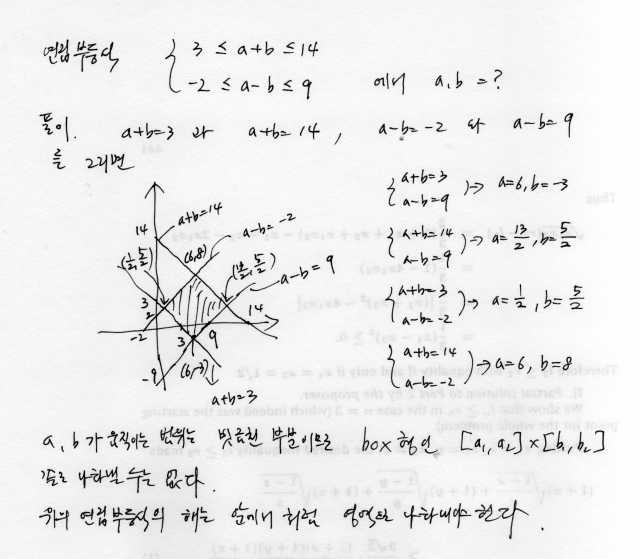 연립부등식 { 3 ≤ a+b ≤ 14
-2 ≤ a-b ≤ 9 에서 a, b = ?
풀이. a+b=3 과 a+b=14, a-b=-2 와 a-b=9
를 그리면
{ a+b=3
a-b=9 ) → a=6, b=-3
{ a+b=14
a-b=9 ) → a=13/2, b=5/2
{ a+b=3
a-b=-2 ) → a=1/2, b=5/2
{ a+b=14
a-b=-2 ) → a=6, b=8
14
a+b=14
a-b=-2
(1/2, 5/2)
(6,8)
(13/2, 5/2)
a-b=9
3
2
-2
3
9
14
-9
(6,-3)
a+b=3
a, b가 움직이는 범위는 빗금친 부분이므로 box 형인 [a₁, a₂]×[b₁, b₂]
꼴로 나타낼 수는 없다.
위의 연립부등식의 해는 앞에서 처럼 영역으로 나타내야 한다.